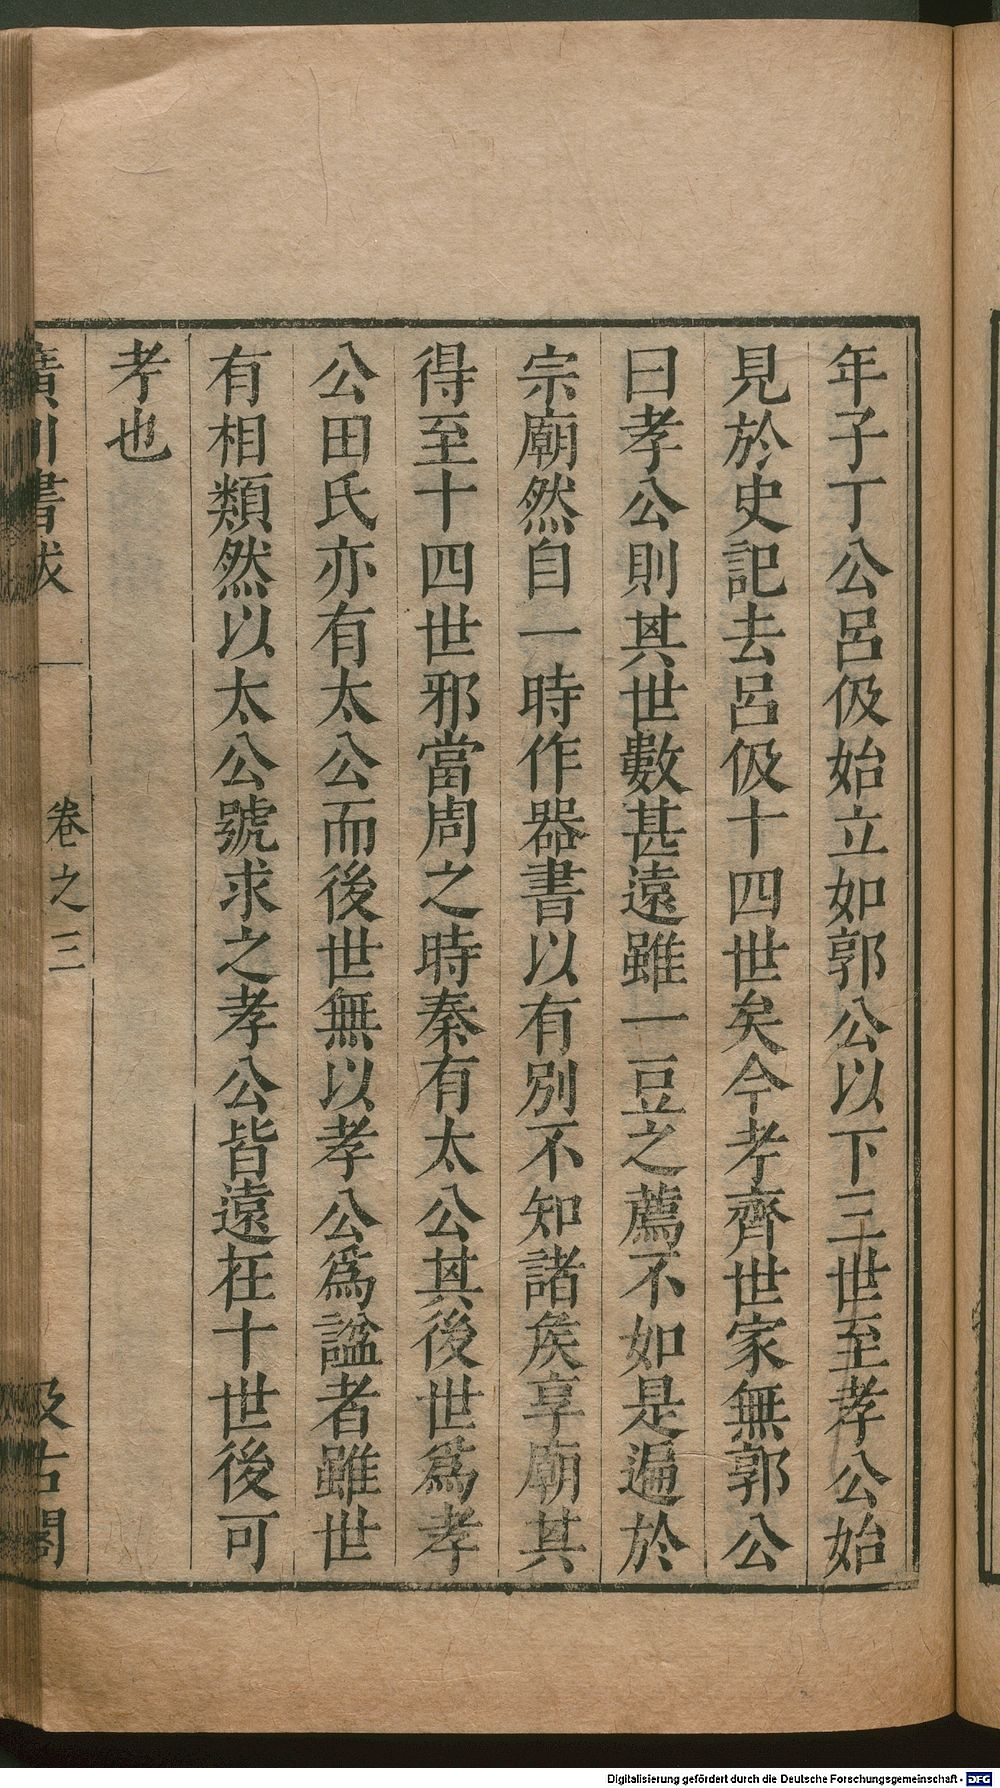 年子丁公呂伋始立如郭公以下三世至孝公始
見於史記去呂伋十四世矣今考齊世家無郭公
曰孝公則其世數甚遠雖一豆之薦不如是遍於
宗廟然自一時作器書以有別不知諸矦享廟其
得至十四世邪當周之時秦有太公其後世爲孝
公田氏亦有太公而後世無以孝公爲諡者雖世
有相類然以太公號求之孝公皆遠在十世後可
考也
廣川書跋 卷之三 汲古閣
Digitalisierung gefördert durch die Deutsche Forschungsgemeinschaft - DFG